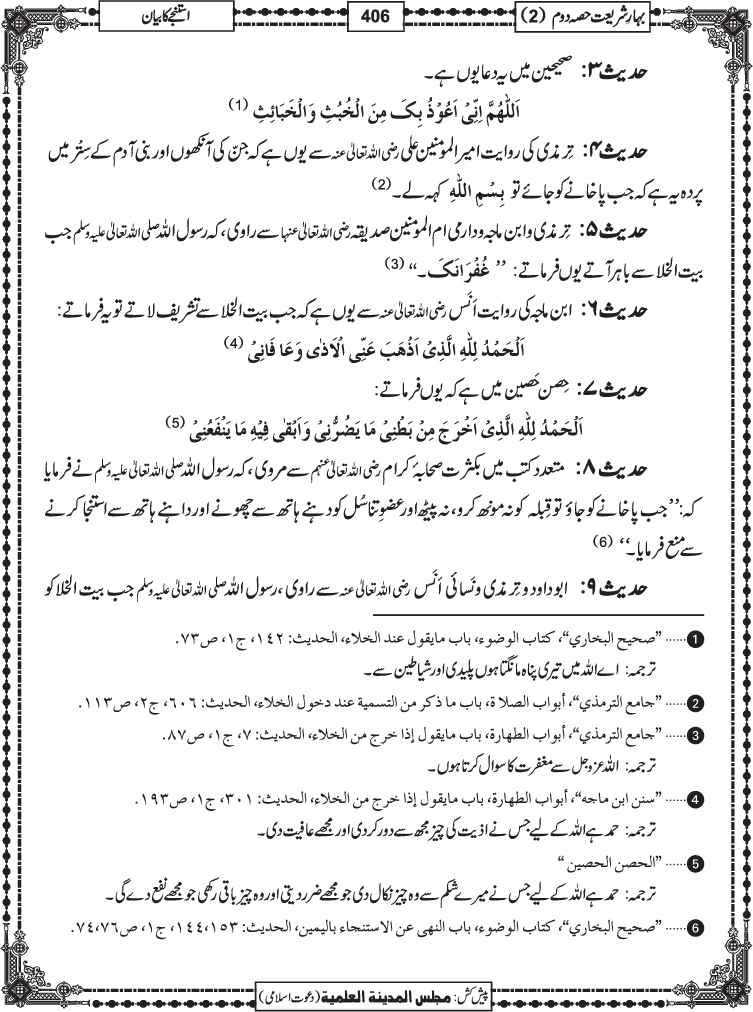 بہارِ شریعت حصہ دوم (2)
406
استنجے کا بیان
حدیث ۳: صحیحین میں یہ دعا یوں ہے۔
اَللّٰھُمَّ اِنِّیْ اَعُوْذُ بِکَ مِنَ الْخُبُثِ وَالْخَبَائِثِ (1)
حدیث ۴: تِرمذی کی روایت امیر المومنین علی رضی اللہ تعالیٰ عنہ سے یوں ہے کہ جِنّ کی آنکھوں اور بنی آدم کے سِتْر میں
پردہ یہ ہے کہ جب پاخانے کو جائے تو بِسْمِ اللّٰہِ کہہ لے۔ (2)
حدیث ۵: تِرمذی و ابن ماجہ و دارمی ام المومنین صدیقہ رضی اللہ تعالیٰ عنہا سے راوی، کہ رسول اللہ صلی اللہ تعالیٰ علیہ وسلم جب
بیت الخلا سے باہر آتے یوں فرماتے: ’’ غُفْرَانَکَ۔‘‘ (3)
حدیث ۶: ابن ماجہ کی روایت اَنَس رضی اللہ تعالیٰ عنہ سے یوں ہے کہ جب بیت الخلا سے تشریف لاتے تو یہ فرماتے:
اَلْحَمْدُ لِلّٰہِ الَّذِیْ اَذْھَبَ عَنِّی الْاَذٰی وَعَا فَانِیْ (4)
حدیث ۷: حِصن حَصین میں ہے کہ یوں فرماتے:
اَلْحَمْدُ لِلّٰہِ الَّذِیْ اَخْرَجَ مِنْ بَطْنِیْ مَا یَضُرُّنِیْ وَاَبْقٰی فِیْہِ مَا یَنْفَعُنِیْ (5)
حدیث ۸: متعدد کتب میں بکثرت صحابۂ کرام رضی اللہ تعالیٰ عنہم سے مروی، کہ رسول اللہ صلی اللہ تعالیٰ علیہ وسلم نے فرمایا
کہ: ’’جب پاخانے کو جاؤ تو قِبلہ کو نہ مونھ کرو، نہ پیٹھ اور عضوِ تناسُل کو دہنے ہاتھ سے چھونے اور داہنے ہاتھ سے استنجا کرنے
سے منع فرمایا۔‘‘ (6)
حدیث ۹: ابو داود و تِرمذی و نَسائی اَنَس رضی اللہ تعالیٰ عنہ سے راوی، رسول اللہ صلی اللہ تعالیٰ علیہ وسلم جب بیت الخلا کو
1 ...... ”صحيح البخاري“، كتاب الوضوء، باب مايقول عند الخلاء، الحديث: ١٤٢، ج١، ص٧٣.
ترجمہ: اے اللہ میں تیری پناہ مانگتا ہوں پلیدی اور شیاطین سے۔
2 ...... ”جامع الترمذي“، أبواب الصلاة، باب ما ذكر من التسمية عند دخول الخلاء، الحديث: ٦٠٦، ج٢، ص١١٣.
3 ...... ”جامع الترمذي“، أبواب الطهارة، باب مايقول إذا خرج من الخلاء، الحديث: ٧، ج١، ص٨٧.
ترجمہ: اللہ عزوجل سے مغفرت کا سوال کرتا ہوں۔
4 ...... ”سنن ابن ماجه“، أبواب الطهارة، باب مايقول إذا خرج من الخلاء، الحديث: ٣٠١، ج١، ص١٩٣.
ترجمہ: حمد ہے اللہ کے لیے جس نے اذیت کی چیز مجھ سے دور کر دی اور مجھے عافیت دی۔
5 ...... ”الحصن الحصين“
ترجمہ: حمد ہے اللہ کے لیے جس نے میرے شکم سے وہ چیز نکال دی جو مجھے ضرر دیتی اور وہ چیز باقی رکھی جو مجھے نفع دے گی۔
6 ...... ”صحيح البخاري“، كتاب الوضوء، باب النهى عن الاستنجاء باليمين، الحديث: ١٤٤،١٥٣، ج١، ص٧٤،٧٦.
پیش کش: مجلس المدينة العلمية (دعوت اسلامی)